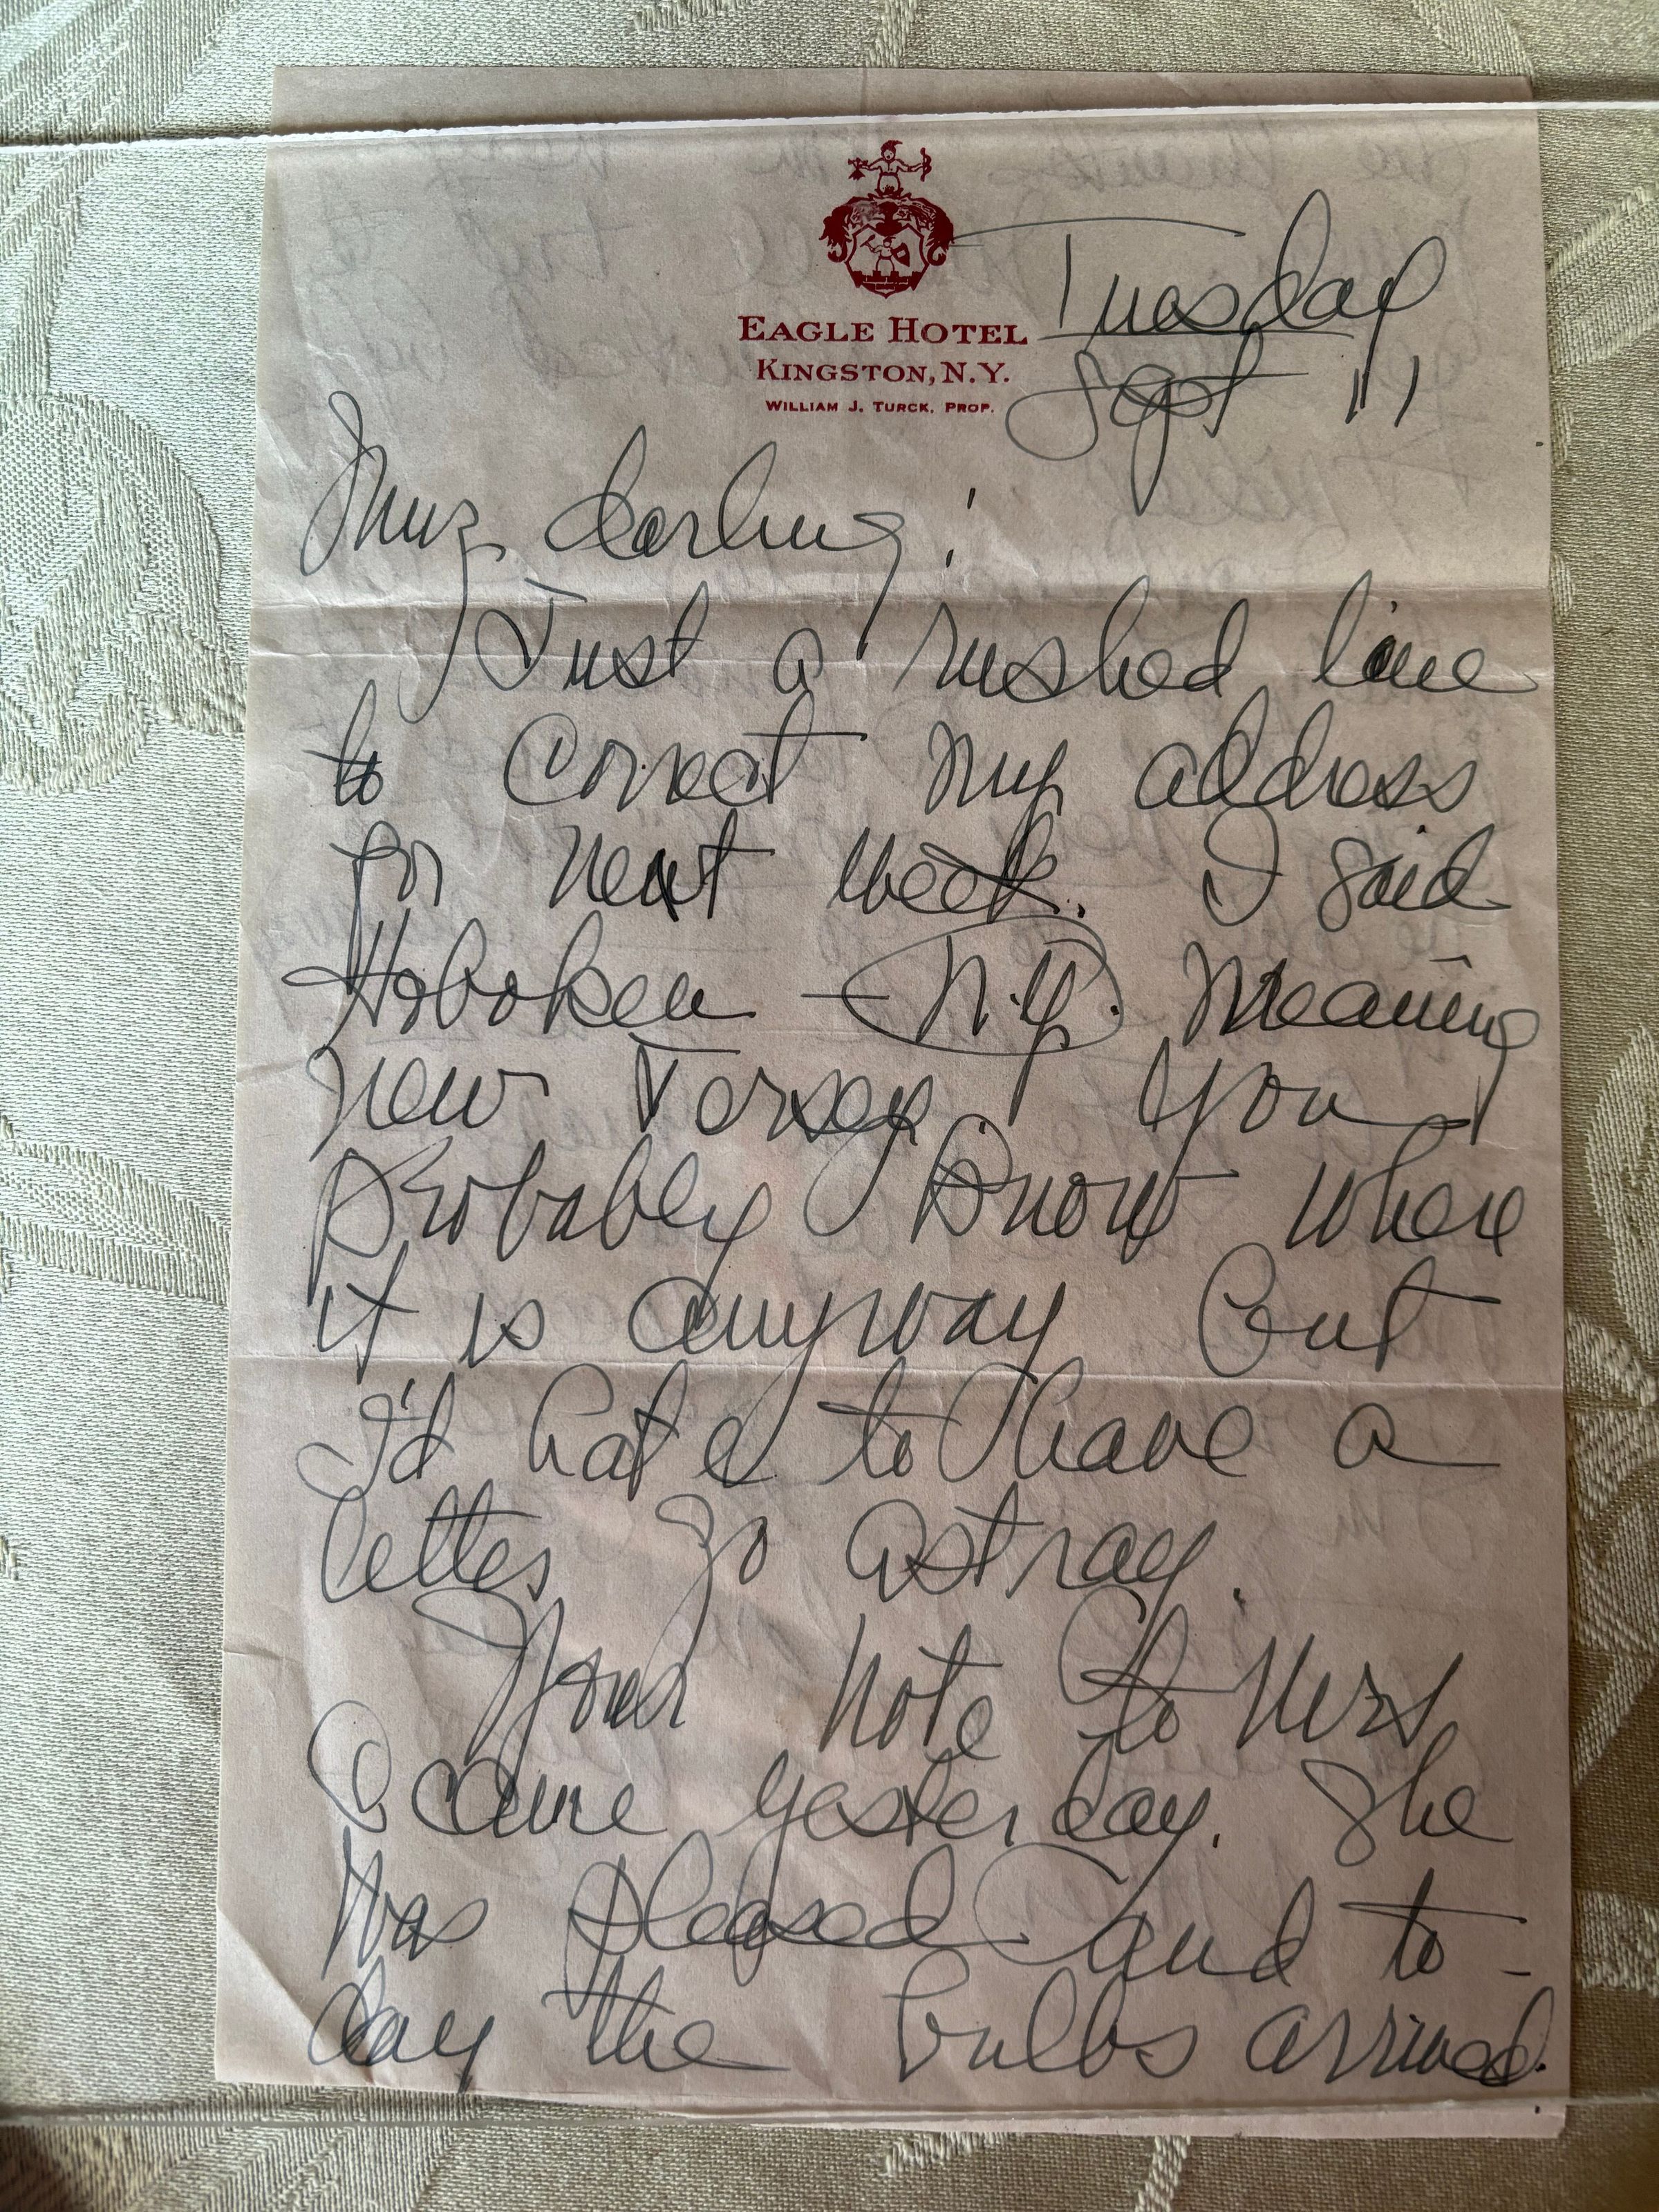 EAGLE HOTEL
KINGSTON, N.Y.
WILLIAM J. TURCK, PROP.
Tuesday
Sept 11,
darling!
Just a rushed line
to correct my address
for next week. I said
Hoboken — N.Y. meaning
New Jersey. You
probably know where
it is anyway but
I'd hate to have a
letter go astray.
Your note to Mrs
S came yesterday. She
was pleased and to-
day the bulbs arrived.